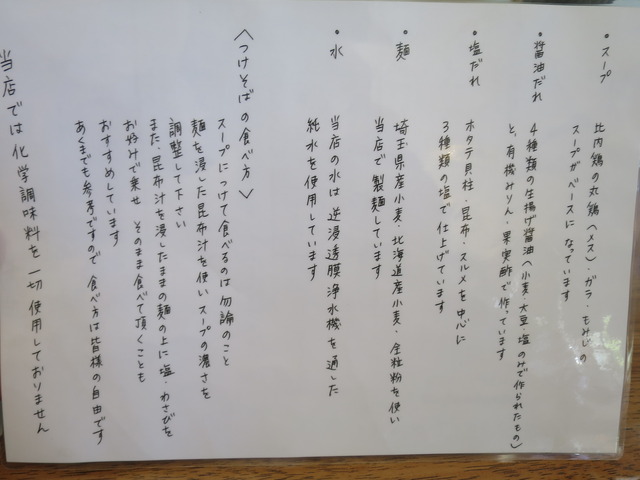 ・スープ
比内鶏の丸鶏(メス)・ガラ・もみじの
スープがベースになっています
・醤油だれ
4種類の生揚げ醤油(小麦・大豆・塩のみで作られたもの)
と、有機みりん・果実酢で作っています
・塩だれ
ホタテ貝柱・昆布・スルメを中心に
3種類の塩で仕上げています
・麺
埼玉県産小麦・北海道産小麦・全粒粉を使い
当店で製麺しています
・水
当店の水は逆浸透膜浄水機を通した
純水を使用しています
〈つけそばの食べ方〉
スープにつけて食べるのは勿論のこと
麺を浸した昆布汁を使いスープの濃さを
調整して下さい
また、昆布汁を浸したままの麺の上に塩・わさびを
お好みで乗せ そのまま食べて頂くことも
おすすめしています
あくまでも参考ですので 食べ方は皆様の自由です
当店では化学調味料を一切使用しておりません